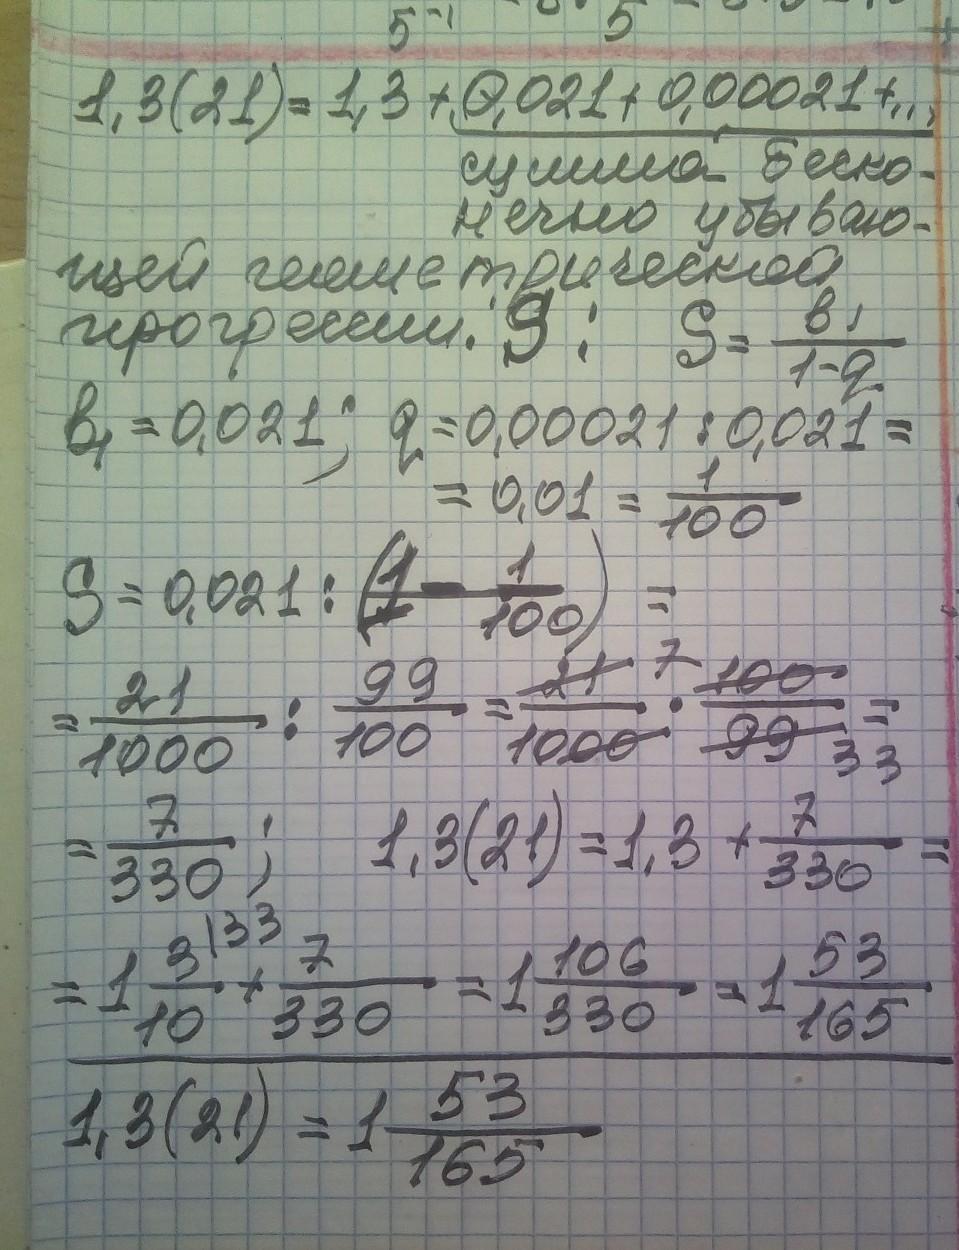 1,3(21) = 1,3 + 0,021 + 0,00021 + ...,
сумма беско-
нечно убываю-
щей геометрической
прогрессии. S : S = b₁/(1-q)
b₁ = 0,021 ; q = 0,00021 : 0,021 =
= 0,01 = 1/100
S = 0,021 : (1 - 1/100) =
= 21/1000 : 99/100 = 21 7/1000 · 100/99 33 =
= 7/330 ; 1,3(21) = 1,3 + 7/330 =
= 1 3|33/10 + 7/330 = 1 106/330 = 1 53/165
1,3(21) = 1 53/165